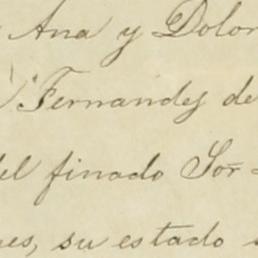 Ana y Dolor
Fernandez de
del finado Sor
es, su estado